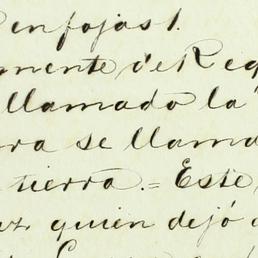 en fojas 1.
mente de Req
llamado la "
ra se llama
tierra. = Este,
quien dejó